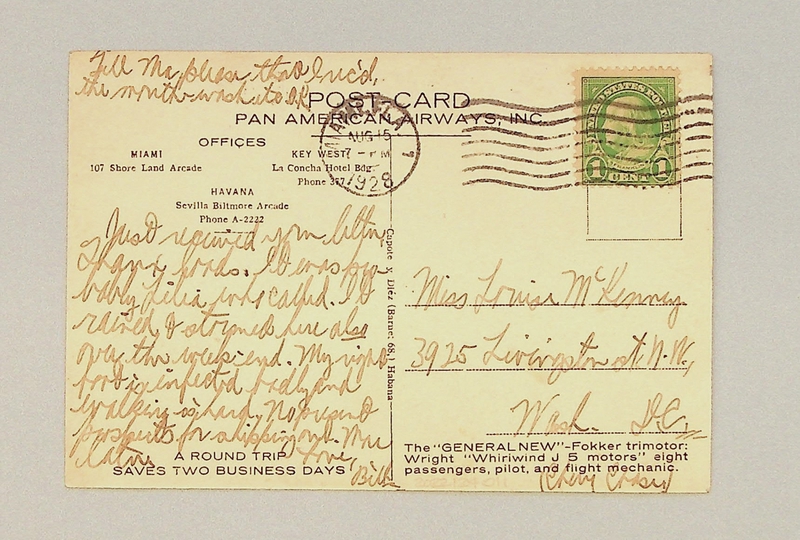 Tell Ma please that I rec'd,
the mouth-wash its O.K.
POST CARD
PAN AMERICAN AIRWAYS, INC.
OFFICES
MIAMI
107 Shore Land Arcade
KEY WEST
La Concha Hotel Bdg.
Phone 357
HAVANA
Sevilla Biltmore Arcade
Phone A-2222
MIAMI, FLA.
AUG 15
7 - PM
1928
1
UNITED STATES POSTAGE
1 CENT 1
Just received your letter
. It was
baby Lilia who called. It
rained & stormed here also
over the week-end. My right
foot is infected badly and
walking is hard. No present
prospects for shipping out. More
later. Love,
Bill
A ROUND TRIP
SAVES TWO BUSINESS DAYS
Capote y Díez (Barnet 68, Habana
Miss Louise McKenney
3925 Livingston st. N.W.,
Wash. D.C.
The "GENERAL NEW"-Fokker trimotor:
Wright "Whirlwind J 5 motors" eight
passengers, pilot, and flight mechanic.
(Chevy Chase)